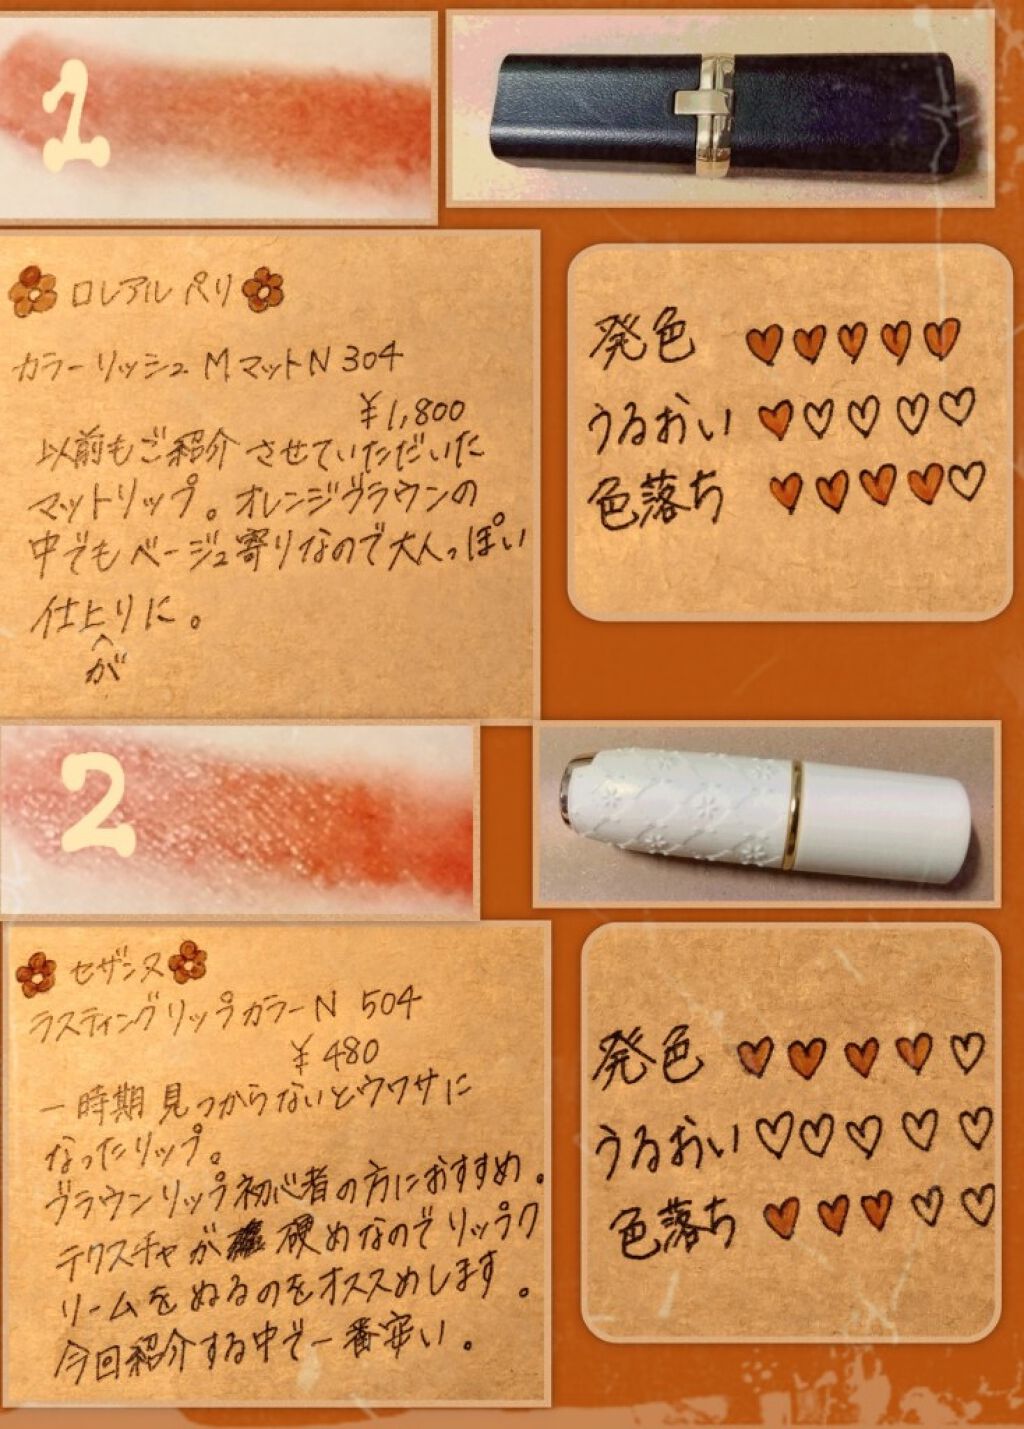 1
ロレアル パリ
カラーリッシュ MマットN 304
¥1,800
以前もご紹介させていただいた
マットリップ。オレンジブラウンの
中でもベージュ寄りなので大人っぽい
仕上りに。
が
発色 ♥♥♥♥♥
うるおい ♥♡♡♡♡
色落ち ♥♥♥♥♡
2
セザンヌ
ラスティングリップカラーN 504
¥480
一時期見つからないとウワサに
なったリップ。
ブラウンリップ初心者の方におすすめ。
テクスチャが硬めなのでリップク
リームをぬるのをオススめします。
今回紹介する中で一番安い。
発色 ♥♥♥♥♡
うるおい ♡♡♡♡♡
色落ち ♥♥♥♡♡